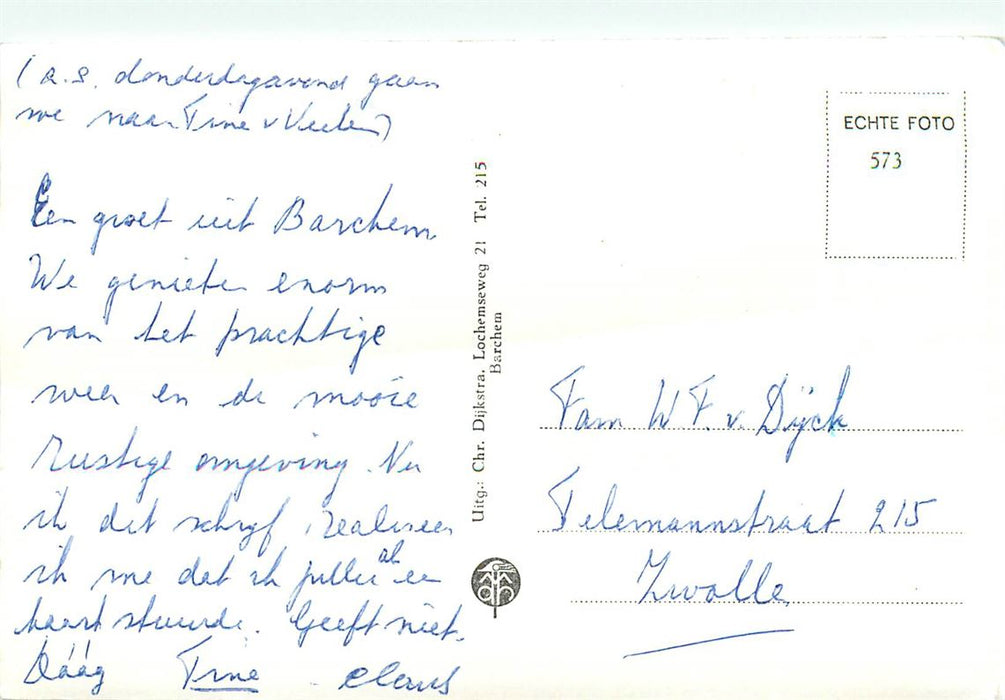 (a.s. donderdagavond gaan
we naar Tine v
Een groet uit Barchem
We genieten enorm
van het prachtige
weer en de mooie
rustige omgeving. Nu
ik dit schryf, realiseer
ik me dat ik jullie al een
kaart stuurde. Geeft niet.
Dáág Tine Claus
Uitg.: Chr. Dijkstra, Lochemseweg 21 Tel. 215
Barchem
ECHTE FOTO
573
Fam W F. v. Dijck
Telemannstraat 215
Zwolle